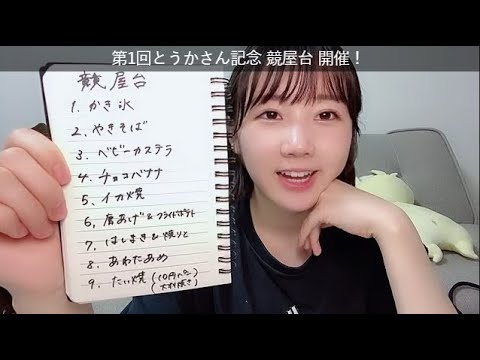 第1回とうかさん記念 競屋台 開催！
競屋台
1. かき氷
2. やきそば
3. ベビーカステラ
4. チョコバナナ
5. イカ焼
6. 唐あげ&フライドポテト
7. はしまき&
8. あわたあめ
9. たい焼 (10円パン